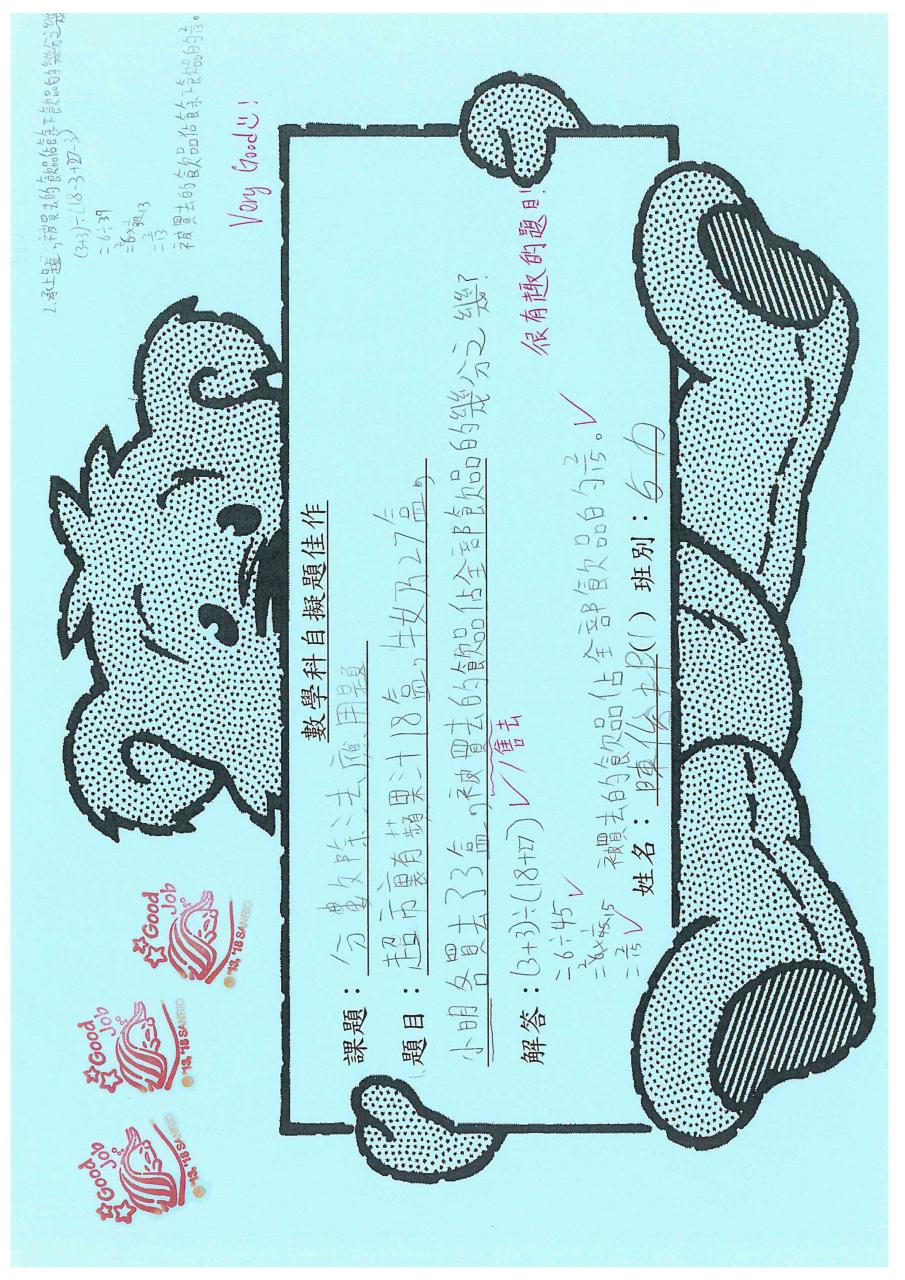 數學科自擬題佳作
課題：分數除法應用題
題目：超市裏有蘋果汁18盒，牛奶27盒，
小明各買去了3盒，被買去的飲品佔全部飲品的幾分之幾？
售去
解答：(3+3)÷(18+27)
=6÷45
=6×1/45
=2/15
被買去的飲品佔全部飲品的2/15。
很有趣的題目！
姓名：陳俊 (1) 班別：5力
2.承上題，被買去的飲品佔餘下飲品的幾分之幾
(3+3)÷(18-3+27-3)
=6÷39
=6×1/39
=2/13
被買去的飲品佔餘下飲品的2/13。
Very Good!
Good Job
'13,'18 SANRIO
Good Job
'13,'18 SANRIO
Good Job
'13,'18 SANRIO